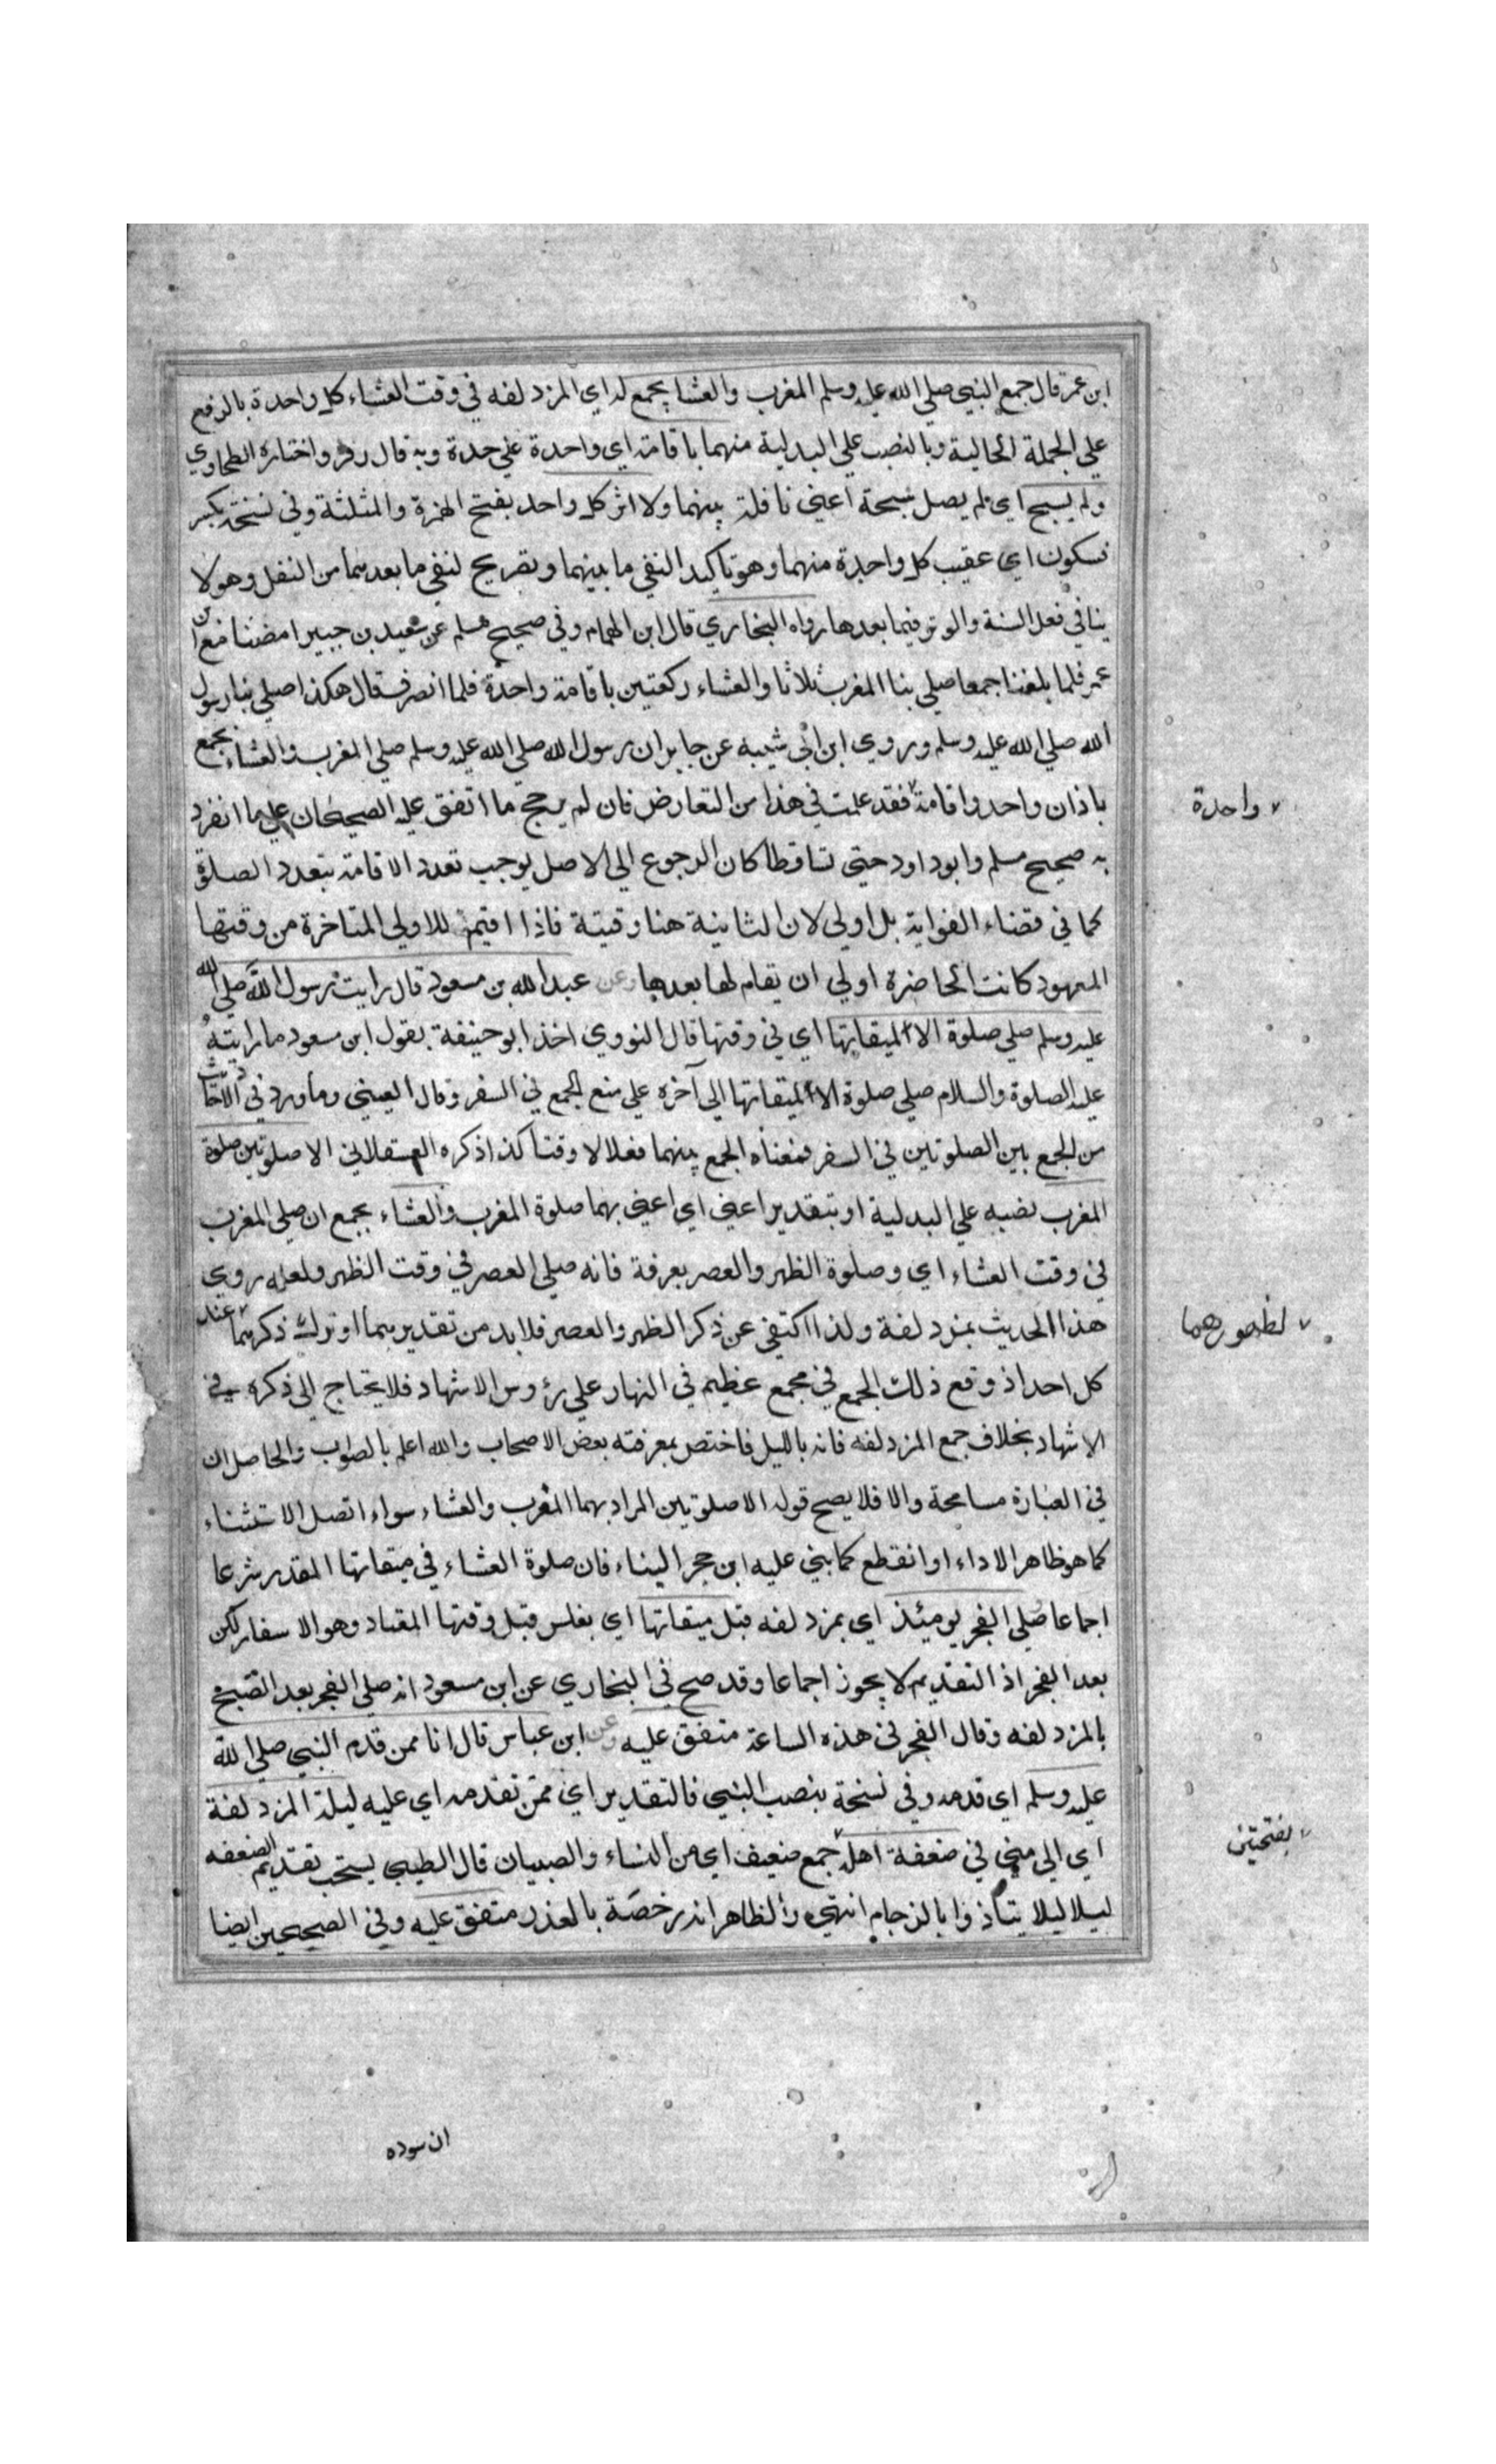 ابن عمر قال جمع النبي صلي الله عليه وسلم المغرب والعشا بجمع لداي المزدلفه في وقت العشاء كل واحدة بالرفع
علي الجملة الحالية وبالنصب علي البدلية منهما باقامة اي واحدة علي حدة وبه قال زفر واختاره الطحاوي
ولم يسبح اي لم يصل سبحة اعني نافلة بينهما ولا اثر كل واحد بفتح الهمزة والمثلثة وفي نسخة بكسر
فسكون اي عقيب كل واحدة منهما وهو تاكيد النفي ما بينهما وتصريح لنفي ما بعدهما من النفل وهو لا
ينافي فعل السنة والوتر فيما بعدها رواه البخاري قال ابن الهمام وفي صحيح مسلم عن سعيد بن جبير امضنا مع ابن
عمر فلما بلغنا جمعا صلي بنا المغرب ثلاثا والعشاء ركعتين باقامة واحدة فلما انصرف قال هكذا صلي بنا رسول
الله صلي الله عليه وسلم وروي ابن ابي شيبه عن جابر ان رسول الله صلي الله عليه وسلم صلي المغرب والعشاء بجمع
باذان واحد واقامة فقد علمت في هذا من التعارض فان لم يرجح ما اتفق عليه الصحيحان علي ما انفرد
واحدة
به صحيح مسلم وابو داود حتي تساقطا كان الرجوع الي الاصل يوجب تعدد الاقامة بتعدد الصلوة
كما في قضاء الفوايت بل اولي لان الثانية هنا وقتية فاذا اقيم للاولي المتاخرة من وقتها
المعهود كانت الحاضرة اولي ان يقام لها بعدها وعن عبد الله بن مسعود قال رايت رسول الله صلي الله
عليه وسلم صلي صلوة الا لميقاتها اي في وقتها قال النووي اخذ ابو حنيفة بقول ابن مسعود ما رايته
عليه الصلوة والسلام صلي صلوة الا لميقاتها الي آخره علي منع الجمع في السفر وقال العيني وما ورد في الاحاديث
من الجمع بين الصلوتين في السفر فمعناه الجمع بينهما فعلا لا وقتا كذا ذكره العسقلاني الا صلوتين صلوة
المغرب نصبه علي البدلية او بتقدير اعني اي اعني بهما صلوة المغرب والعشاء بجمع ان صلي المغرب
في وقت العشاء اي وصلوة الظهر والعصر بعرفة فانه صلي العصر في وقت الظهر ولعله روي
هذا الحديث بمزدلفة ولذا اكتفي عن ذكر الظهر والعصر فلا بد من تقديرهما او ترك ذكرهما عند
لظهورهما
كل احد اذ وقع ذلك الجمع في مجمع عظيم في النهار علي رؤوس الاشهاد فلا يحتاج الي ذكره في
الاشهاد بخلاف جمع المزدلفه فانه بالليل فاختص بمعرفته بعض الاصحاب والله اعلم بالصواب والحاصل ان
في العبارة مسامحة والا فلا يصح قوله الا صلوتين المراد بهما المغرب والعشاء سواء اتصل الاستثناء
كما هو ظاهر الاداء او انقطع كما بني عليه ابن حجر البناء فان صلوة العشاء في ميقاتها المقدر شرعا
اجماعا صلي الفجر يومئذ اي بمزدلفه قبل ميقاتها اي بغلس قبل وقتها المعتاد وهو الاسفار لكن
بعد الفجر اذ التقديم لا يجوز اجماعا وقد صح في البخاري عن ابن مسعود انه صلي الفجر بعد الصبح
بالمزدلفه وقال الفجر في هذه الساعة متفق عليه وعن ابن عباس قال انا ممن قدم النبي صلي الله
عليه وسلم اي قدمه وفي نسخة بنصب النبي فالتقدير اي ممن تقدمه اي عليه ليلة المزدلفة
اي الي مني في ضعفة اهله جمع ضعيف اي من النساء والصبيان قال الطيبي يستحب تقديم الضعفه
بفتحتين
ليلا ليلا يتاذوا بالزحام انتهي والظاهر انه رخصة بالعذر متفق عليه وفي الصحيحين ايضا
ان سوده